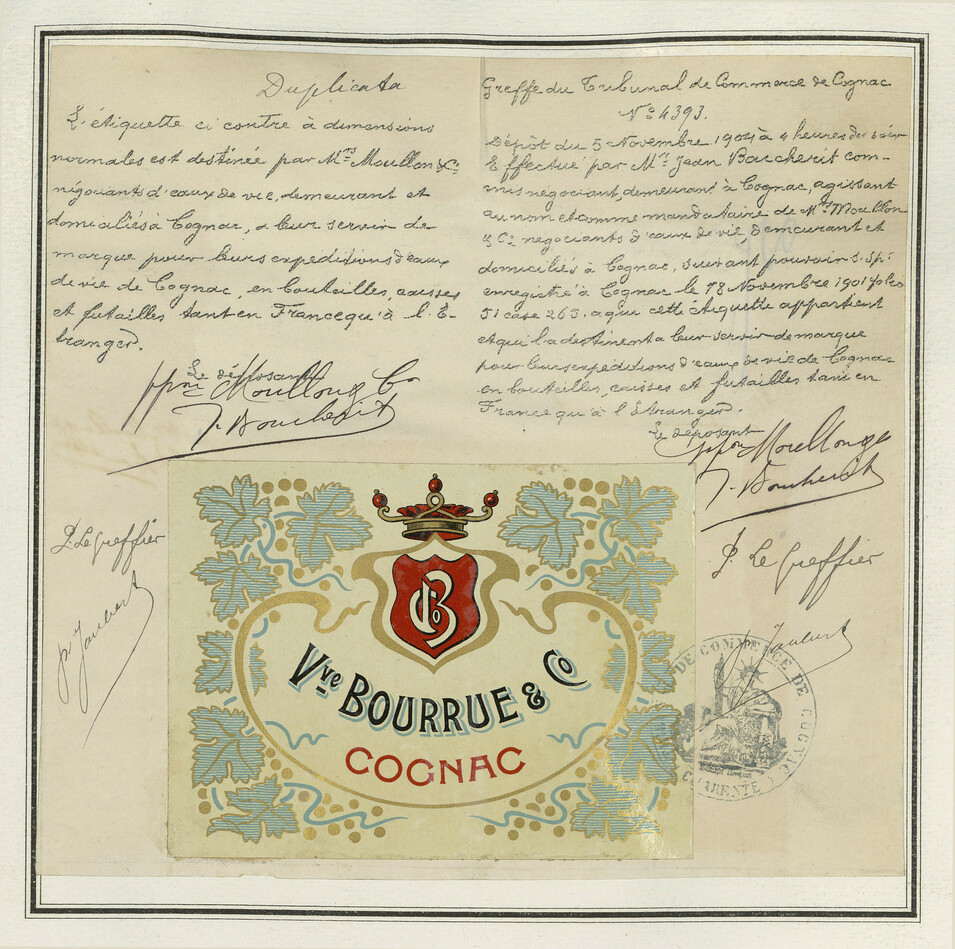 Duplicata
L'étiquette ci contre à dimensions
normales est destinée par Mrs Moullon & Cie
négociants d'eaux de vie, demeurant et
domicaliés à Cognac, a leur servir de
marque pour leurs expeditions d'eaux
de vie de Cognac, en bouteilles, caisses
et futailles tant en France qu'à l'E-
tranger.
Le déposant
ppon Moullon & Co
J. Boucherit
P. Le Greffier
Greffe du Tribunal de Commerce de Cognac
No 4393.
Dépôt du 5 Novembre 1904 à 4 heures du soir
Effectué par Mr Jean Boucherit com-
mis négociant, demeurant à Cognac, agissant
au nom et comme mandataire de Mrs Moullon
& Cie négociants d'eaux de vie demeurant et
domiciliés à Cognac, suivant pouvoir s. sp.
enregistré à Cognac le 18 Novembre 1901 folio
51 case 265. a qui cette étiquette appartient
et qui l'a destinent a leur servir de marque
pour leurs expéditions d'eaux de vie de Cognac
en bouteilles, caisses et futailles tant en
France qu'à l'Etranger.
Le déposant
ppon Moullon &
J. Boucherit
P. Le Greffier
C Co B
Vve BOURRUE & Co
COGNAC
DE COMMERCE DE COGNAC
CHARENTE